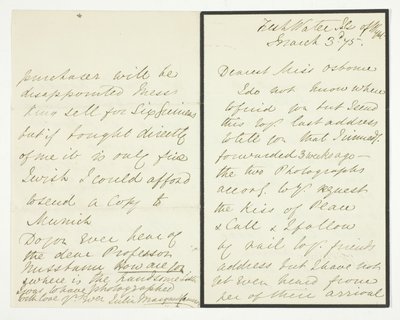 Fresh Water I. of W
March 3d 75.
Dearest Miss Osborne
I do not know where
to find you but I send
this to yr last address
to tell you that I immedy
forwarded 3 weeks ago –
the two Photographs
accordg to yr request
the Kiss of Peace
& Call & I follow
by rail to yr friends
address but I have not
yet even heard from
her of their arrival
purchaser will be
disappointed Messrs
King sell for Six Guineas
but if bought directly
of me it is only five
I wish I could afford
to send a Copy to
Munich
Do you Ever hear of
the dear Professor
Nussbaum How are you
& where is the handsome
I was to have photographed
with love Yrs Ever Julia Margaret